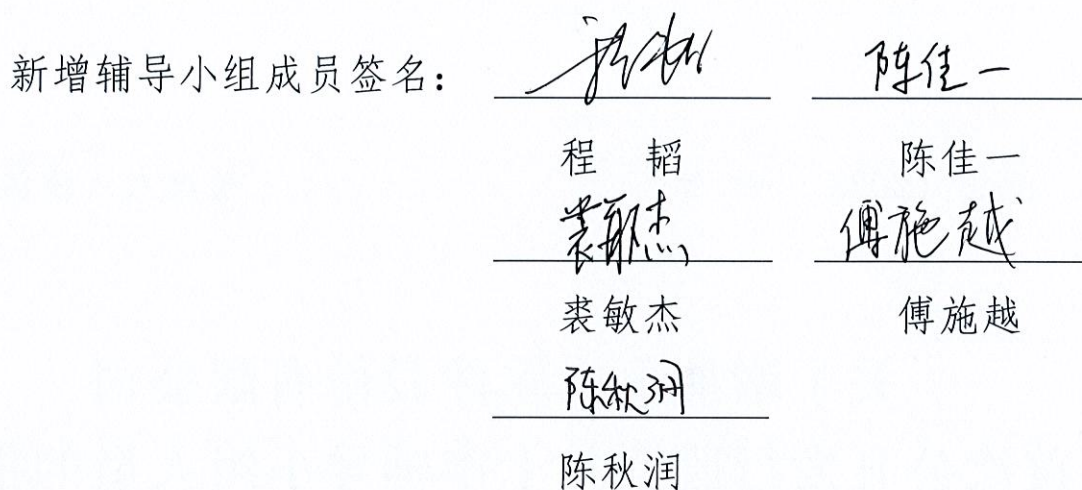 新增辅导小组成员签名： 陈佳一
程 韬 陈佳一
裘敏杰 傅施越
裘敏杰 傅施越
陈秋润
陈秋润